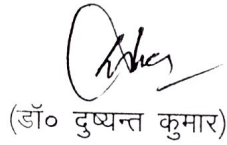 (डॉ० दुष्यन्त कुमार)